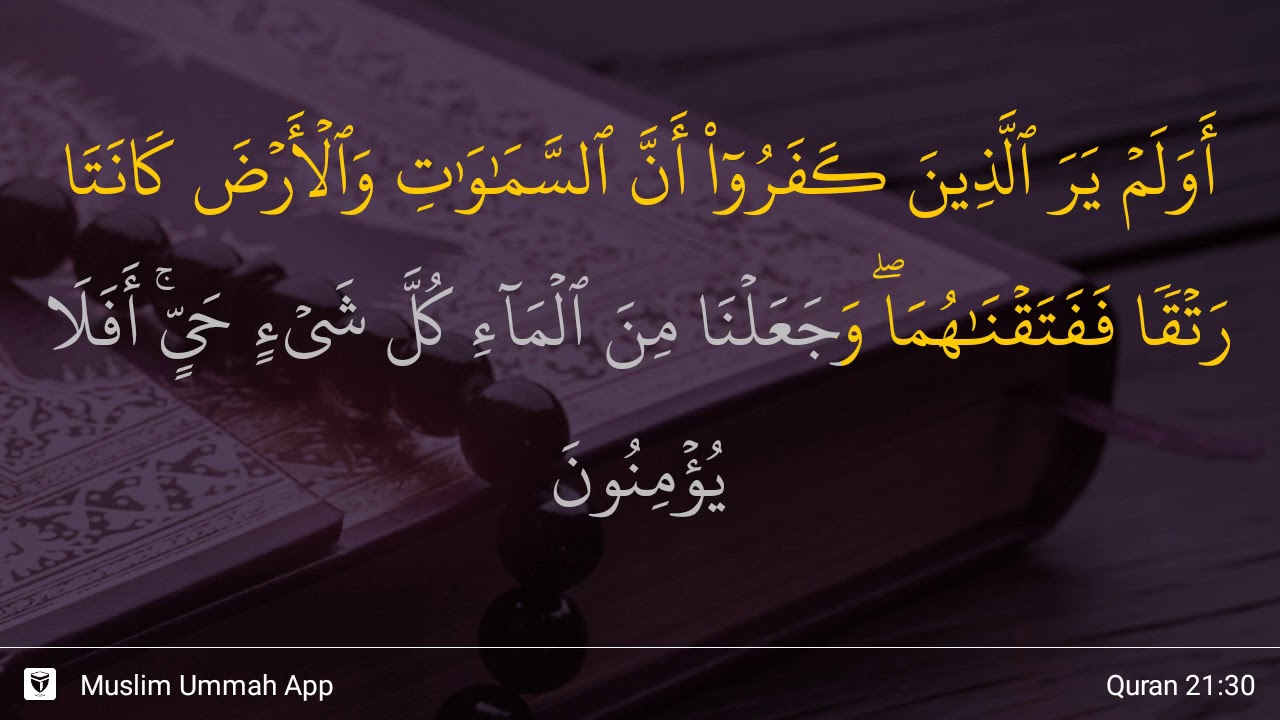 أَوَلَمۡ يَرَ ٱلَّذِينَ كَفَرُوٓاْ أَنَّ ٱلسَّمَٰوَٰتِ وَٱلۡأَرۡضَ كَانَتَا
رَتۡقٗا فَفَتَقۡنَٰهُمَاۖ وَجَعَلۡنَا مِنَ ٱلۡمَآءِ كُلَّ شَيۡءٍ حَيٍّۚ أَفَلَا
يُؤۡمِنُونَ
Muslim Ummah App
Quran 21:30